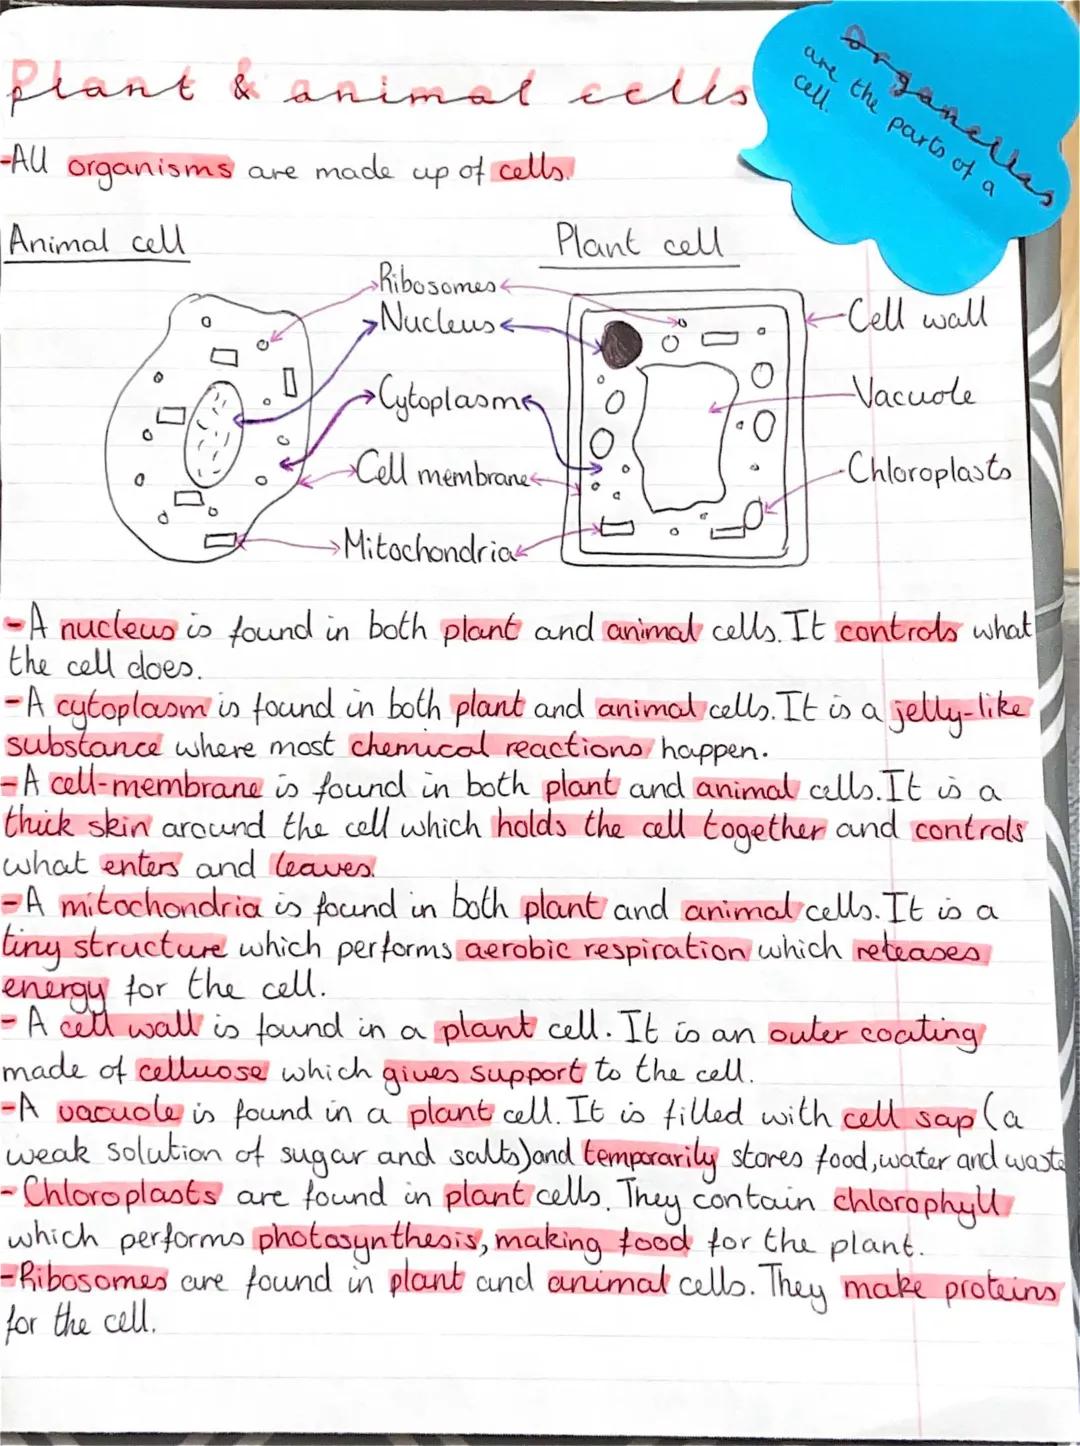 Plant & animal cells
organelles
are the parts of a
cell.
-All organisms are made up of cells.
Animal cell
Plant cell
Ribosomes
Nucleus
Cytoplasm
Cell membrane
Mitochondria
Cell wall
Vacuole
Chloroplasts
-A nucleus is found in both plant and animal cells. It controls what
the cell does.
-A cytoplasm is found in both plant and animal cells. It is a jelly-like
substance where most chemical reactions happen.
-A cell-membrane is found in both plant and animal cells. It is a
thick skin around the cell which holds the cell together and controls
what enters and leaves.
-A mitochondria is found in both plant and animal cells. It is a
tiny structure which performs aerobic respiration which releases
energy for the cell.
-A cell wall is found in a plant cell. It is an outer coating
made of celluose which gives support to the cell.
-A vacuole is found in a plant cell. It is filled with cell sap (a
weak solution of sugar and salts) and temporarily stores food, water and waste
-Chloroplasts are found in plant cells. They contain chlorophyll
which performs photosynthesis, making food for the plant.
-Ribosomes are found in plant and animal cells. They make proteins
for the cell.